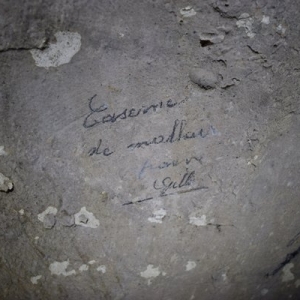 Caserne
de malheur
pour